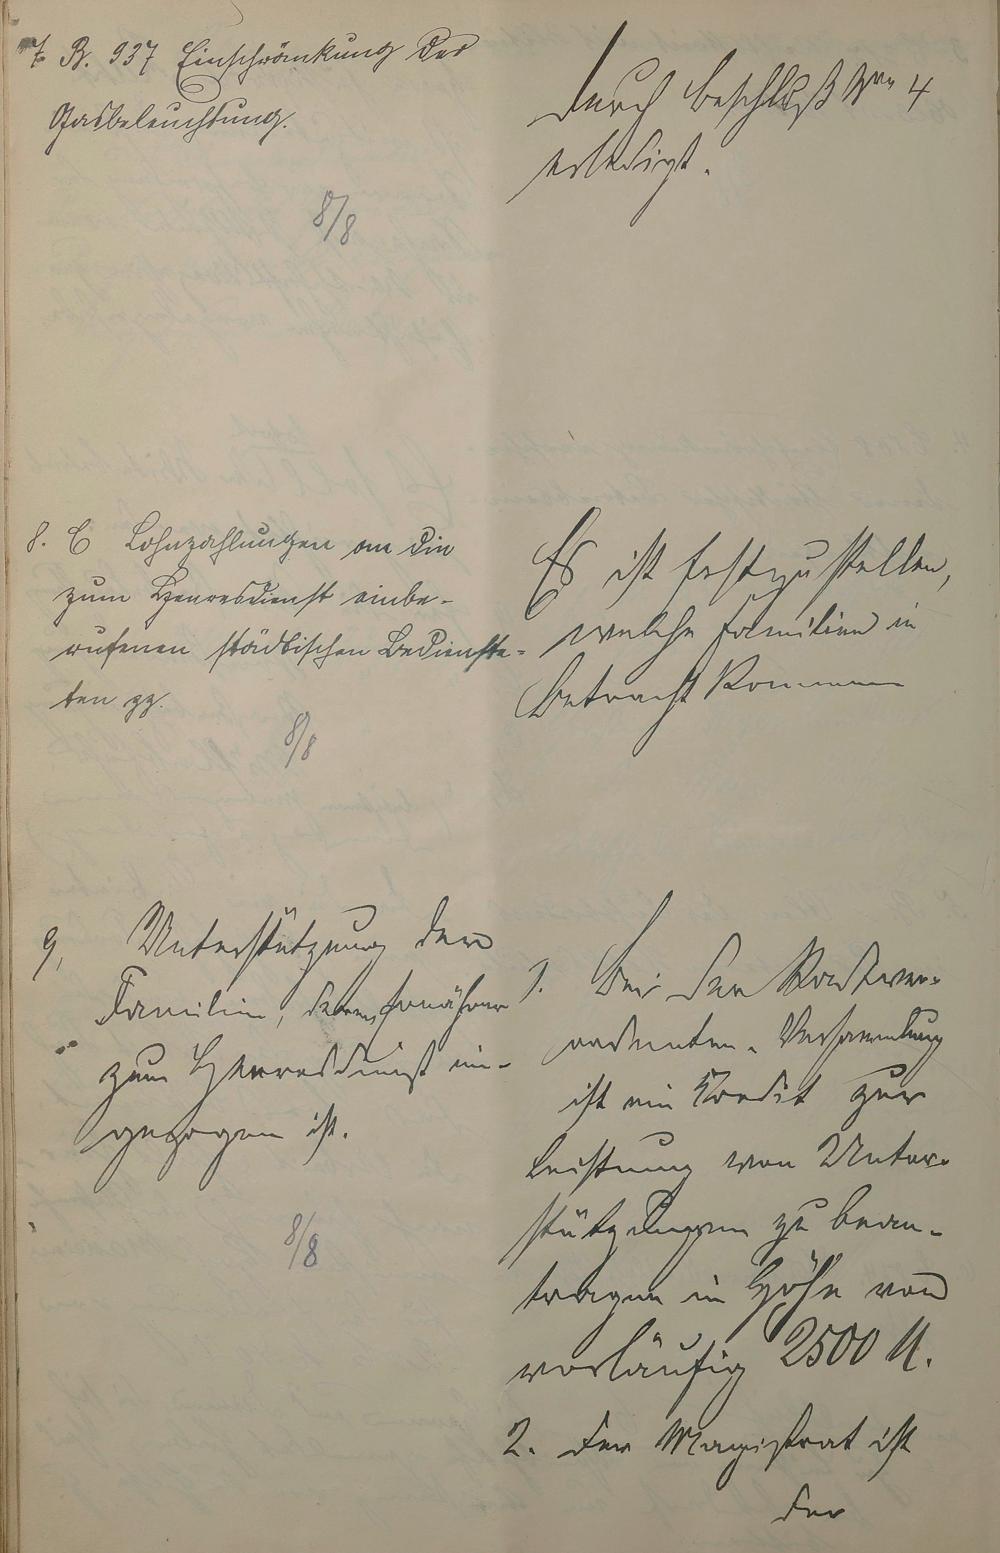 7. B. 937 Einschränkung der
Gasbeleuchtung.
8/8
Durch Beschluß Nro 4
erledigt.
8. C Lohnzahlungen an die
zum Heeresdienst einbe-
rufenen städtischen Bedienste-
ten pp.
8/8
Es ist festzustellen,
welche Familien in
Betracht kommen
9, Unterstützung der
Familien, deren Ernährer
zum Heeresdienst ein-
gezogen ist.
8/8
1. Bei der Stadtver-
ordneten-Versammlung
ist ein Kredit zur
Leistung von Unter-
stützungen zu bean-
tragen in Höhe von
vorläufig 2500 M.
2. Der Magistrat ist
der